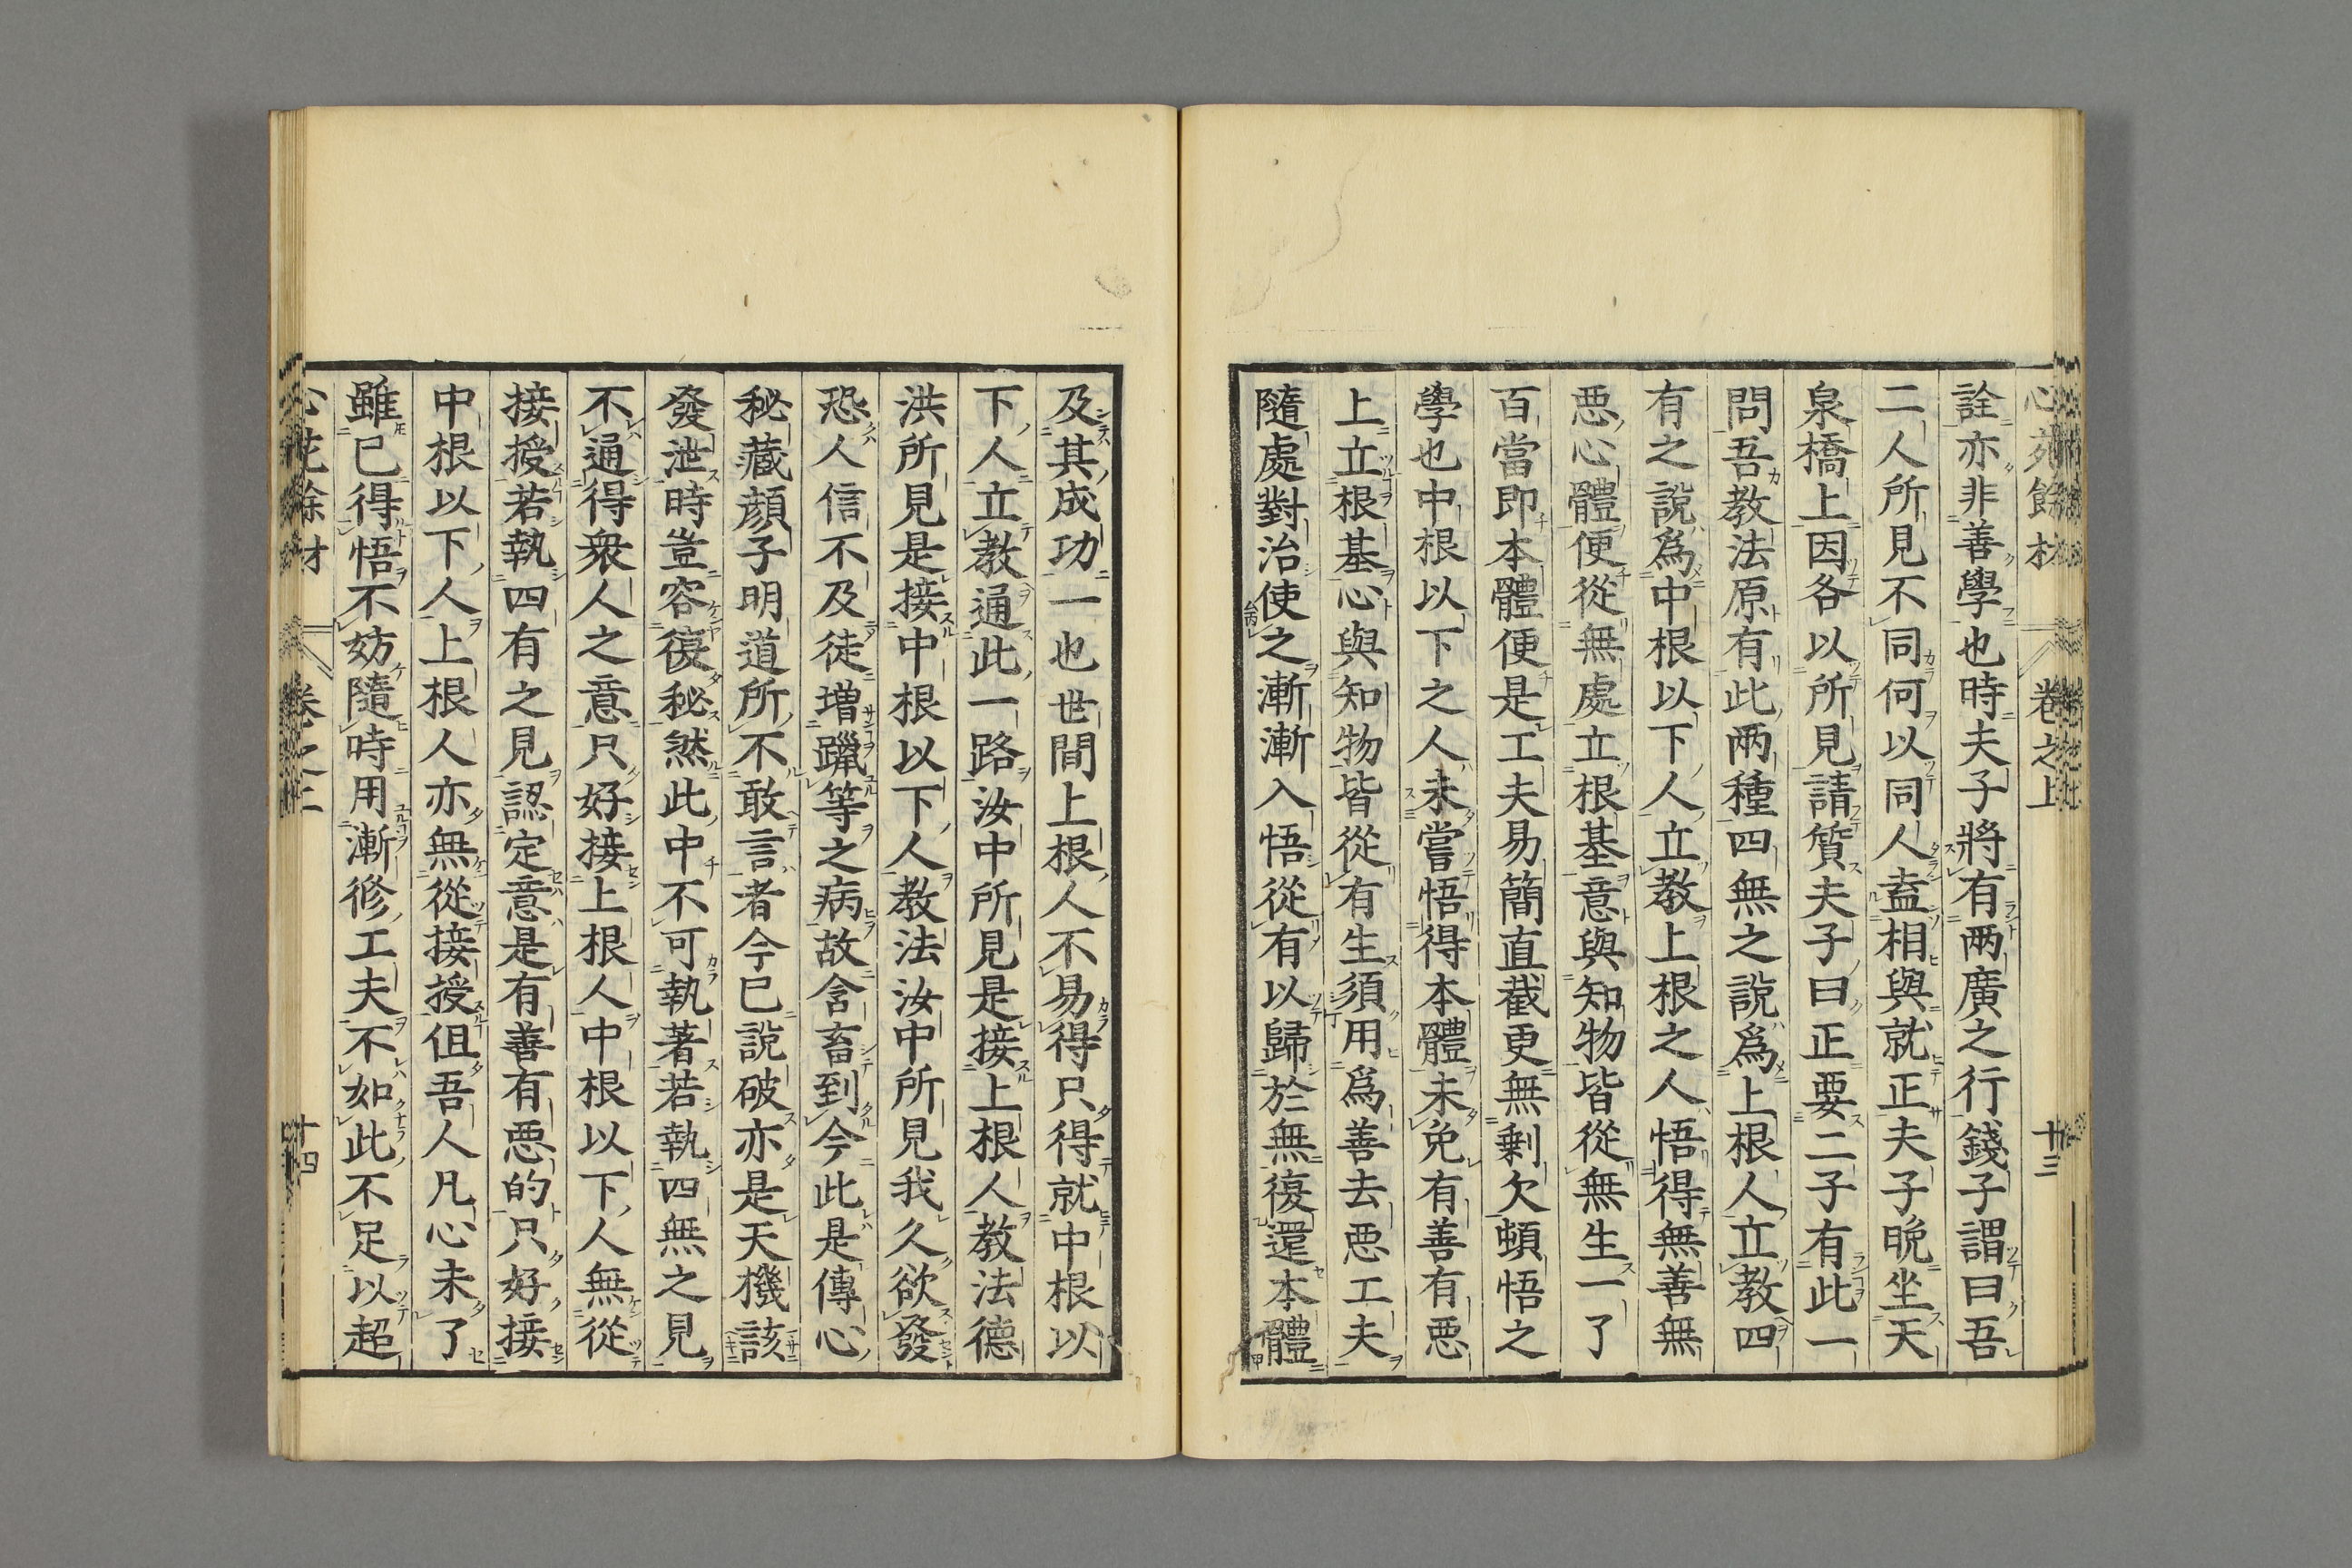 心苑餘材 卷之上 廿三
詮亦非善學也時夫子將有兩廣之行錢子謂曰吾
二人所見不同何以同人盍相與就正夫子晩坐天
泉橋上因各以所見請質夫子曰正要二子有此一
問吾教法原有此兩種四無之說爲上根人立教四
有之說爲中根以下人立教上根之人悟得無善無
悪心體便從無處立根基意與知物皆從無生一了
百當即本體便是工夫易簡直截更無剰欠頓悟之
學也中根以下之人未嘗悟得本體未免有善有悪
上立根基心與知物皆從有生須用爲善去悪工夫
隨處對治使之漸漸入悟從有以歸於無復還本體
及其成功一也世間上根人不易得只得就中根以
下人立教通此一路汝中所見是接上根人教法德
洪所見是接中根以下人教法汝中所見我久欲發
恐人信不及徒增躐等之病故含畜到今此是傳心
秘藏顔子明道所不敢言者今已說破亦是天機該
發泄時豈容復秘然此中不可執著若執四無之見
不通得衆人之意只好接上根人中根以下人無從
接授若執四有之見認定意是有善有悪的只好接
中根以下人上根人亦無從接授但吾人凡心未了
雖已得悟不妨隨時用漸修工夫不如此不足以超